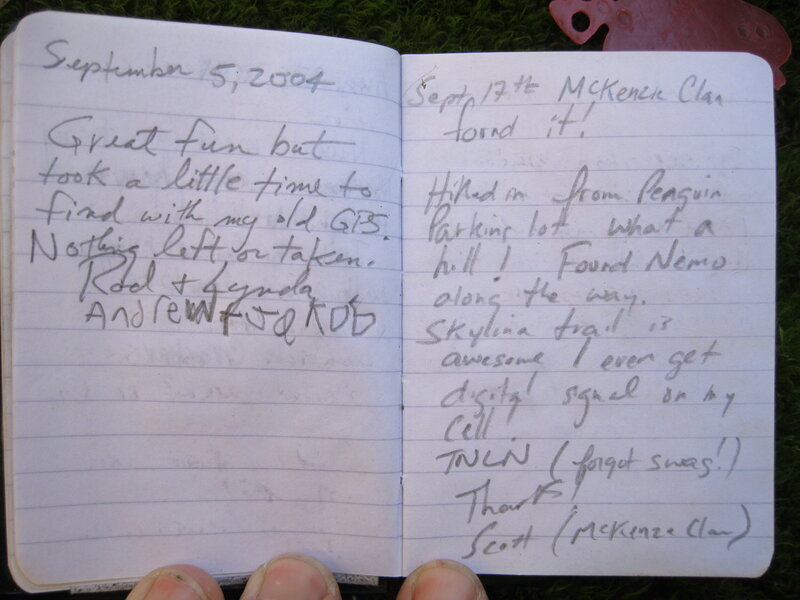 September 5, 2004
Great fun but
took a little time to
find with my old GPS.
Nothing left or taken.
Rod + Lynda
Andrew + Jakob
Sept 17th McKenzie Clan
found it!
Hiked in from Penguin
Parking lot what a
hill! Found Nemo
along the way.
Skyline trail is
awesome I even get
digital signal on my
Cell!
TNLN (forgot swag!)
Thanks!
Scott (McKenzie Clan)